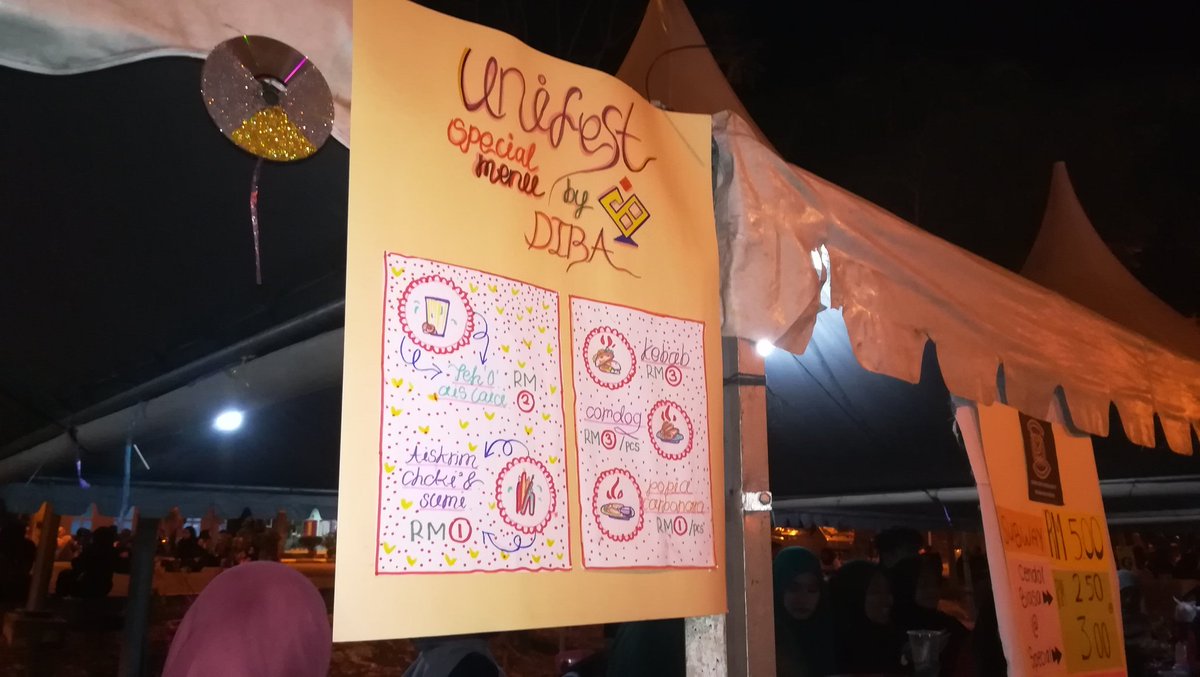 Unifest
special
menu by
DIBA
Teh O'
ais Laici RM 2
Aiskrim
choki &
sume
RM 1
Kebab
RM 3
corndog
RM 3/pcs
popia
carbonara
RM 1/pcs
SUBWAY RM 5.00
Cendol
Biasa 2.50
@
Special 3.00